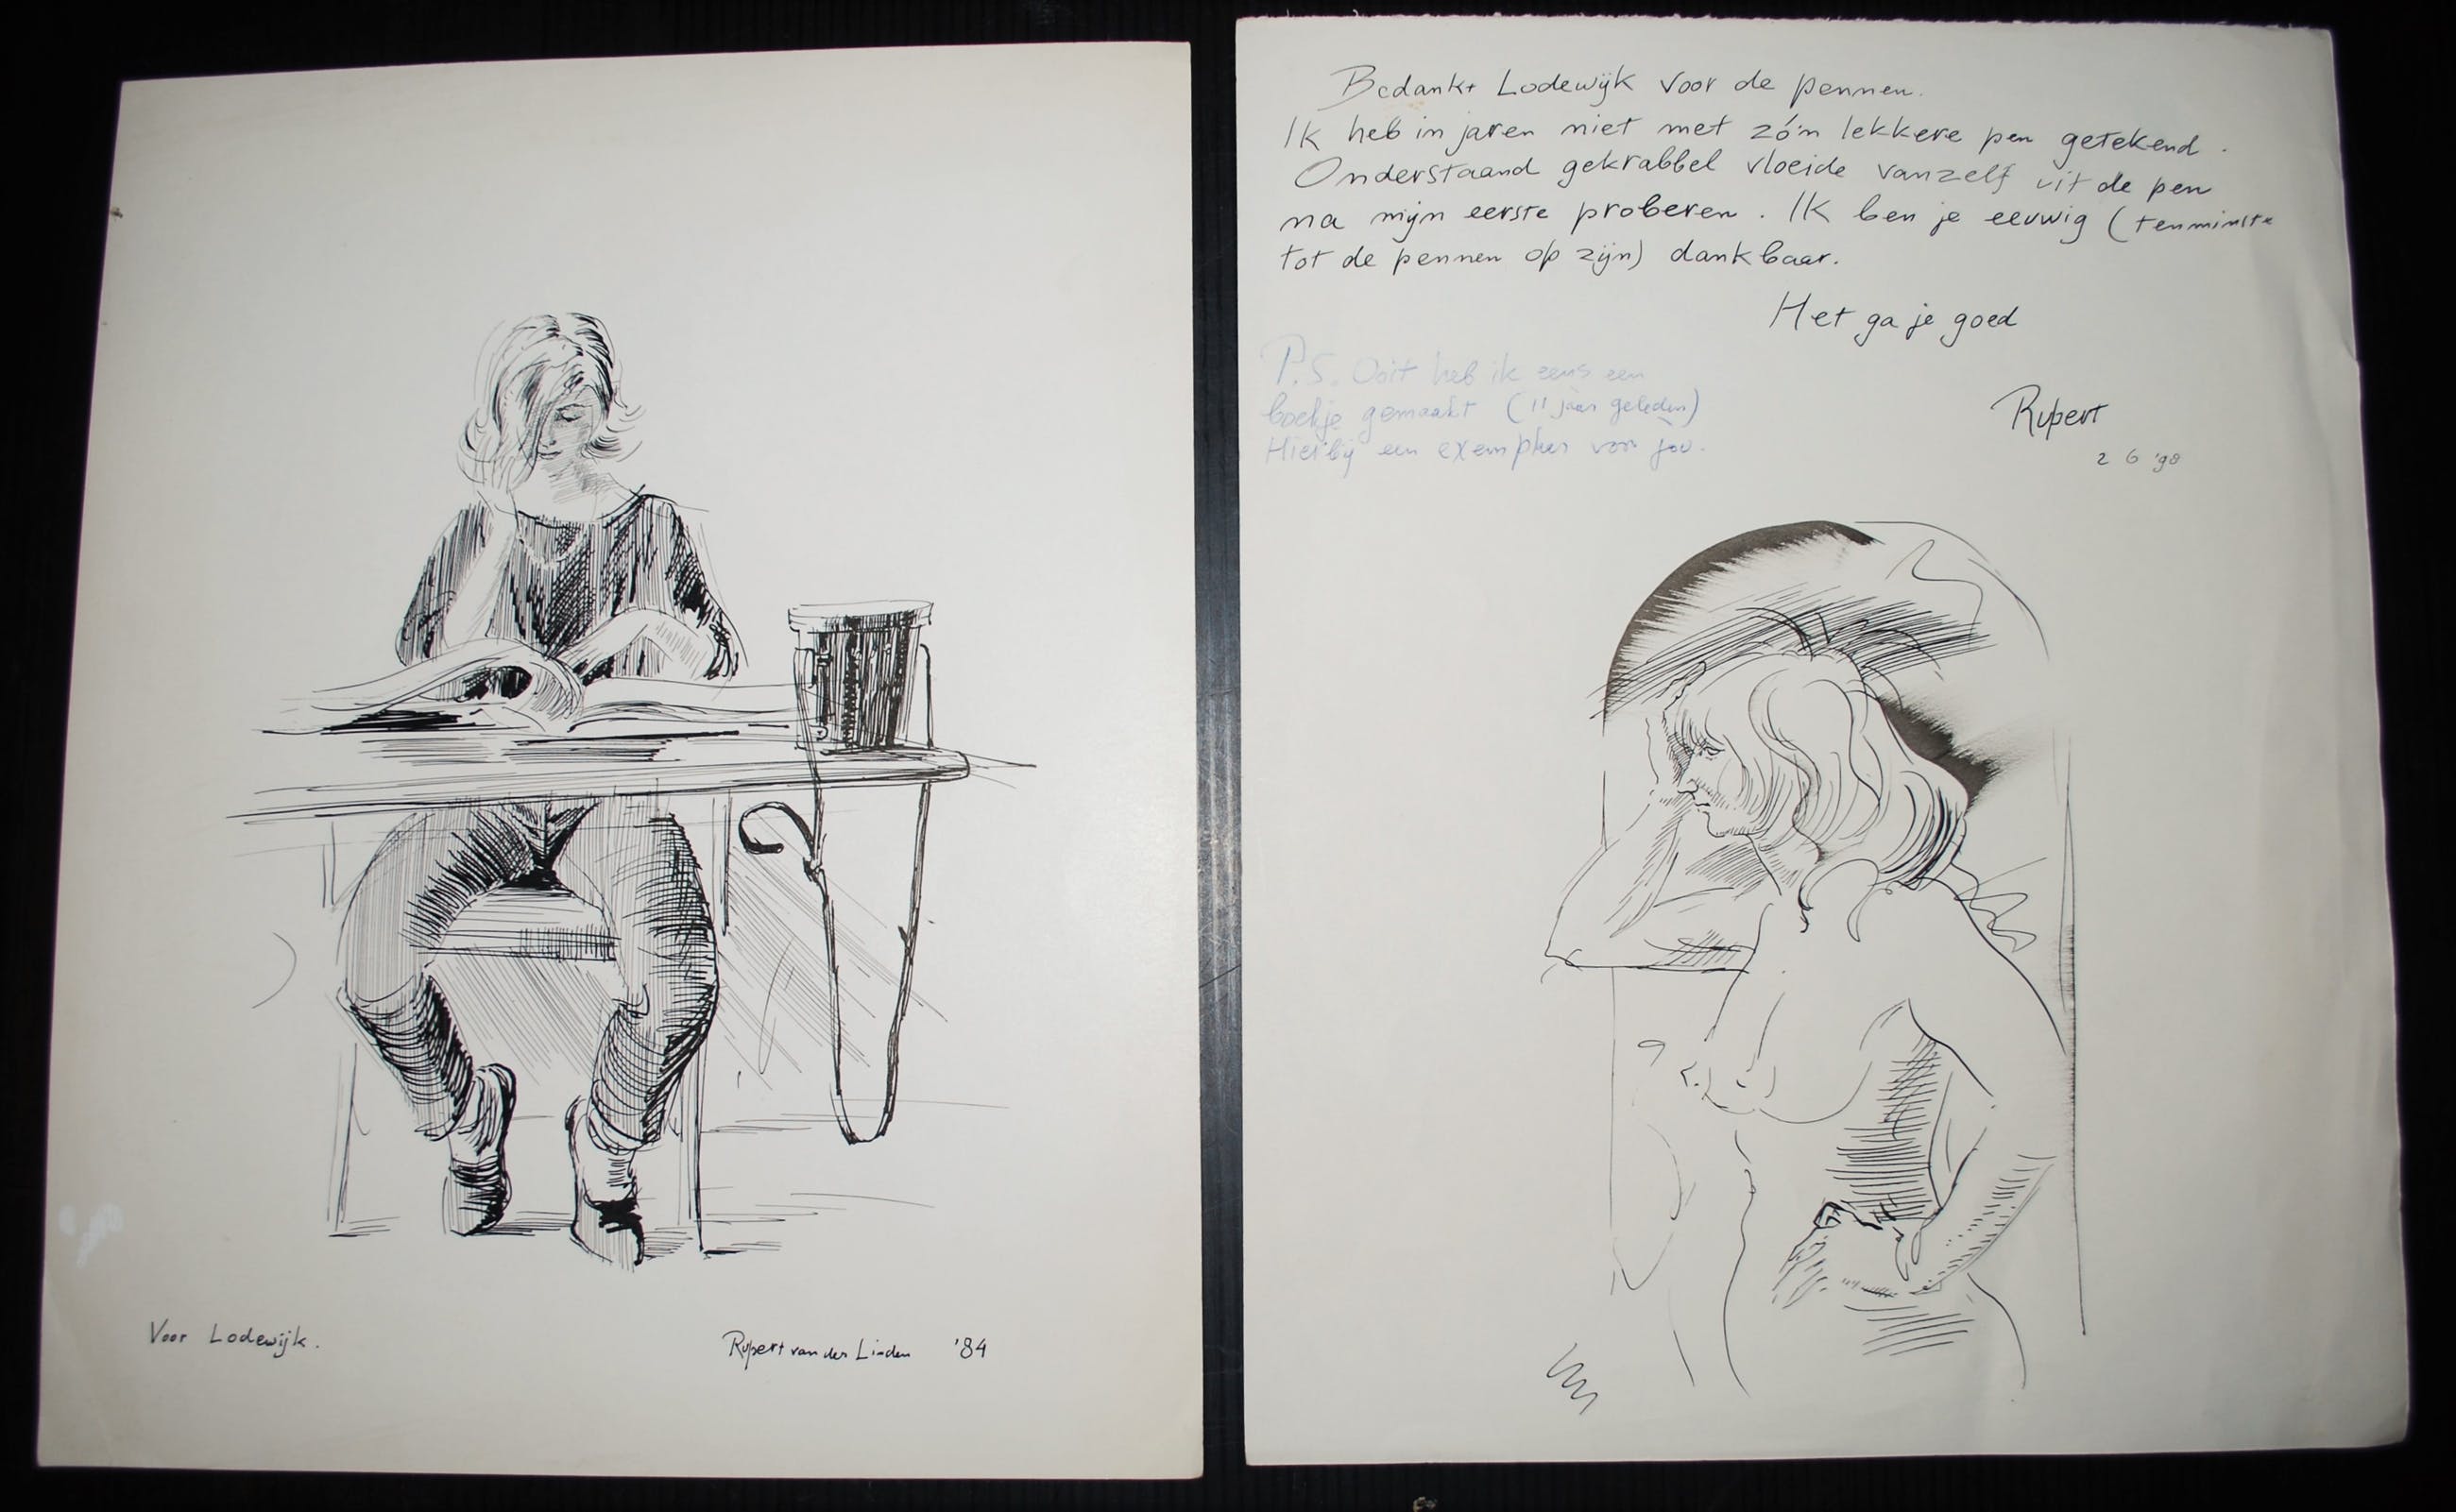 Voor Lodewijk.
Rupert van der Linden '84
Bedankt Lodewijk voor de pennen.
Ik heb in jaren niet met zó'n lekkere pen getekend.
Onderstaand gekrabbel vloeide vanzelf uit de pen
na mijn eerste proberen. Ik ben je eeuwig (tenminste
tot de pennen op zijn) dankbaar.
Het ga je goed
Rupert
2 6 '98
P.S. Ooit heb ik eens een
boekje gemaakt (11 jaar geleden)
Hierbij een exemplaar voor jou.